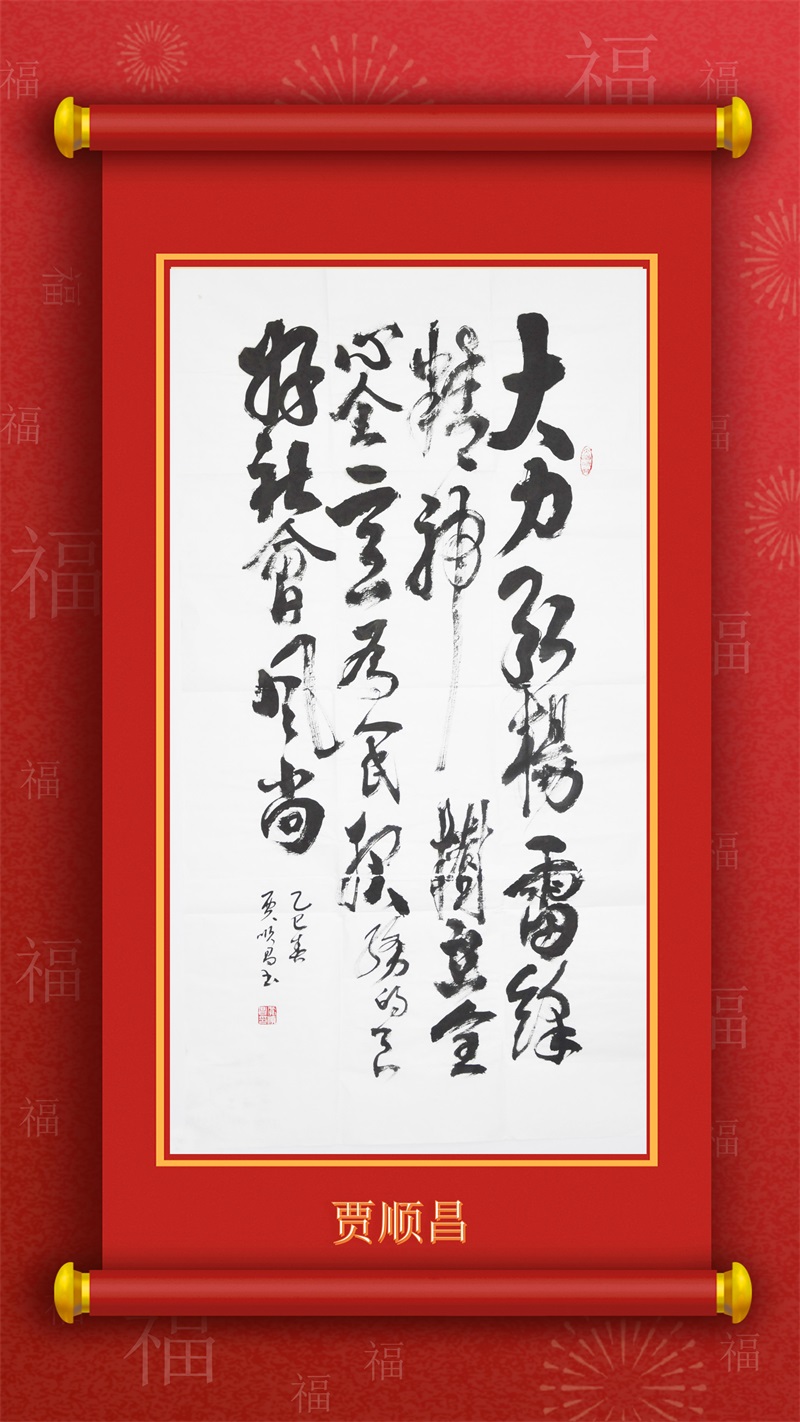 大力弘揚雷鋒
精神樹立全
心全意为民服務的良
好社會風尚
乙巳春
贾顺昌书
贾顺昌
福